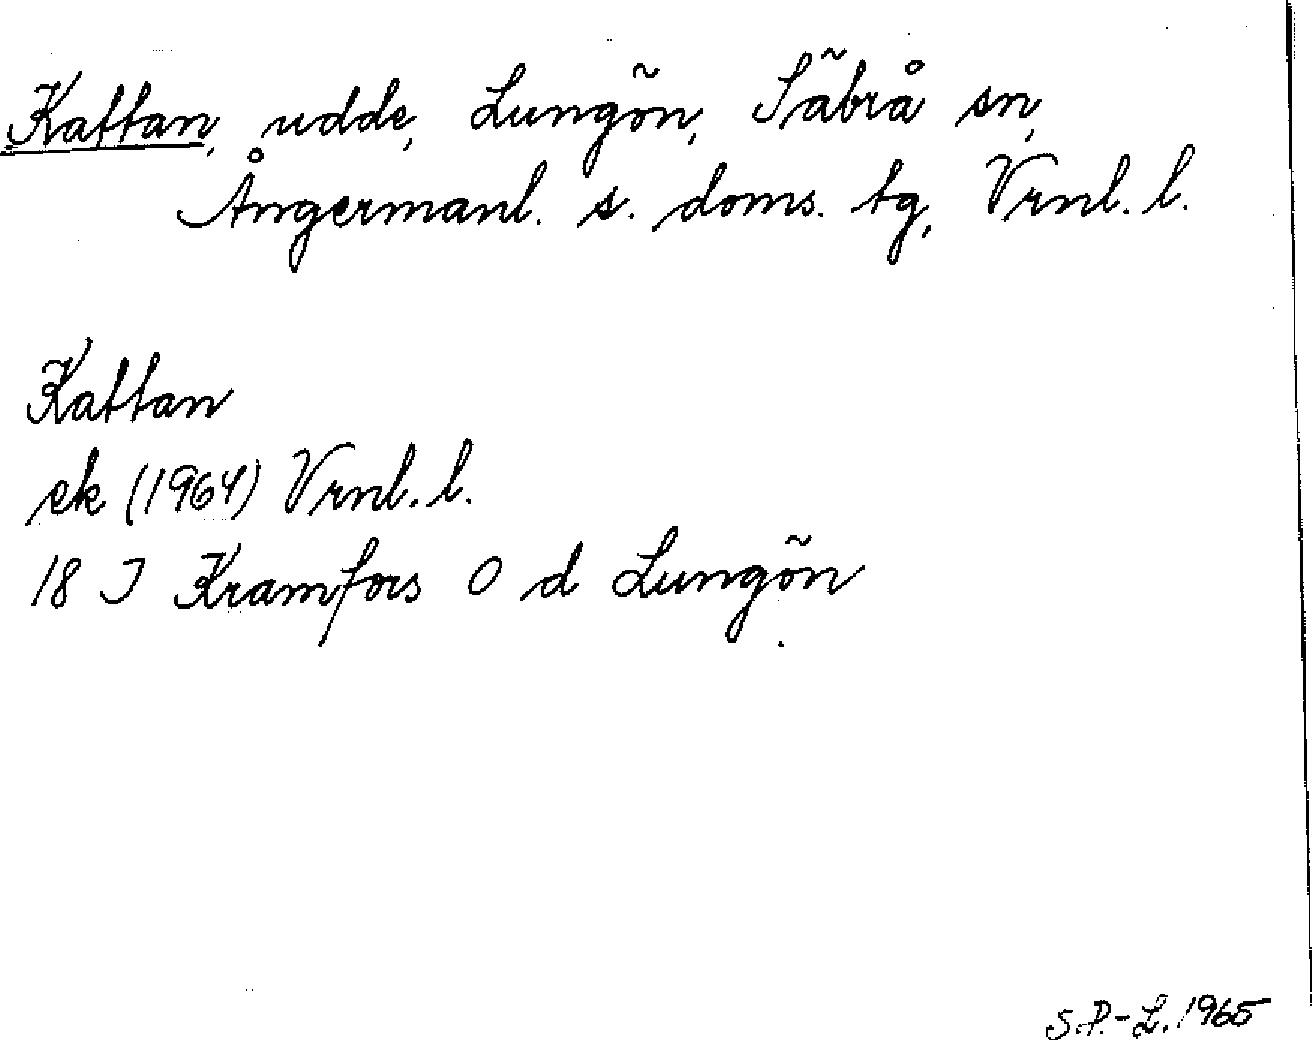 Kattan, udde, Lungön, Säbrå sn,
Ångermanl. s. doms. tg, Vrnl. l.
Kattan
ek (1964) Vrnl. l.
18 I Kramfors O d Lungön
S.P.-L. 1965